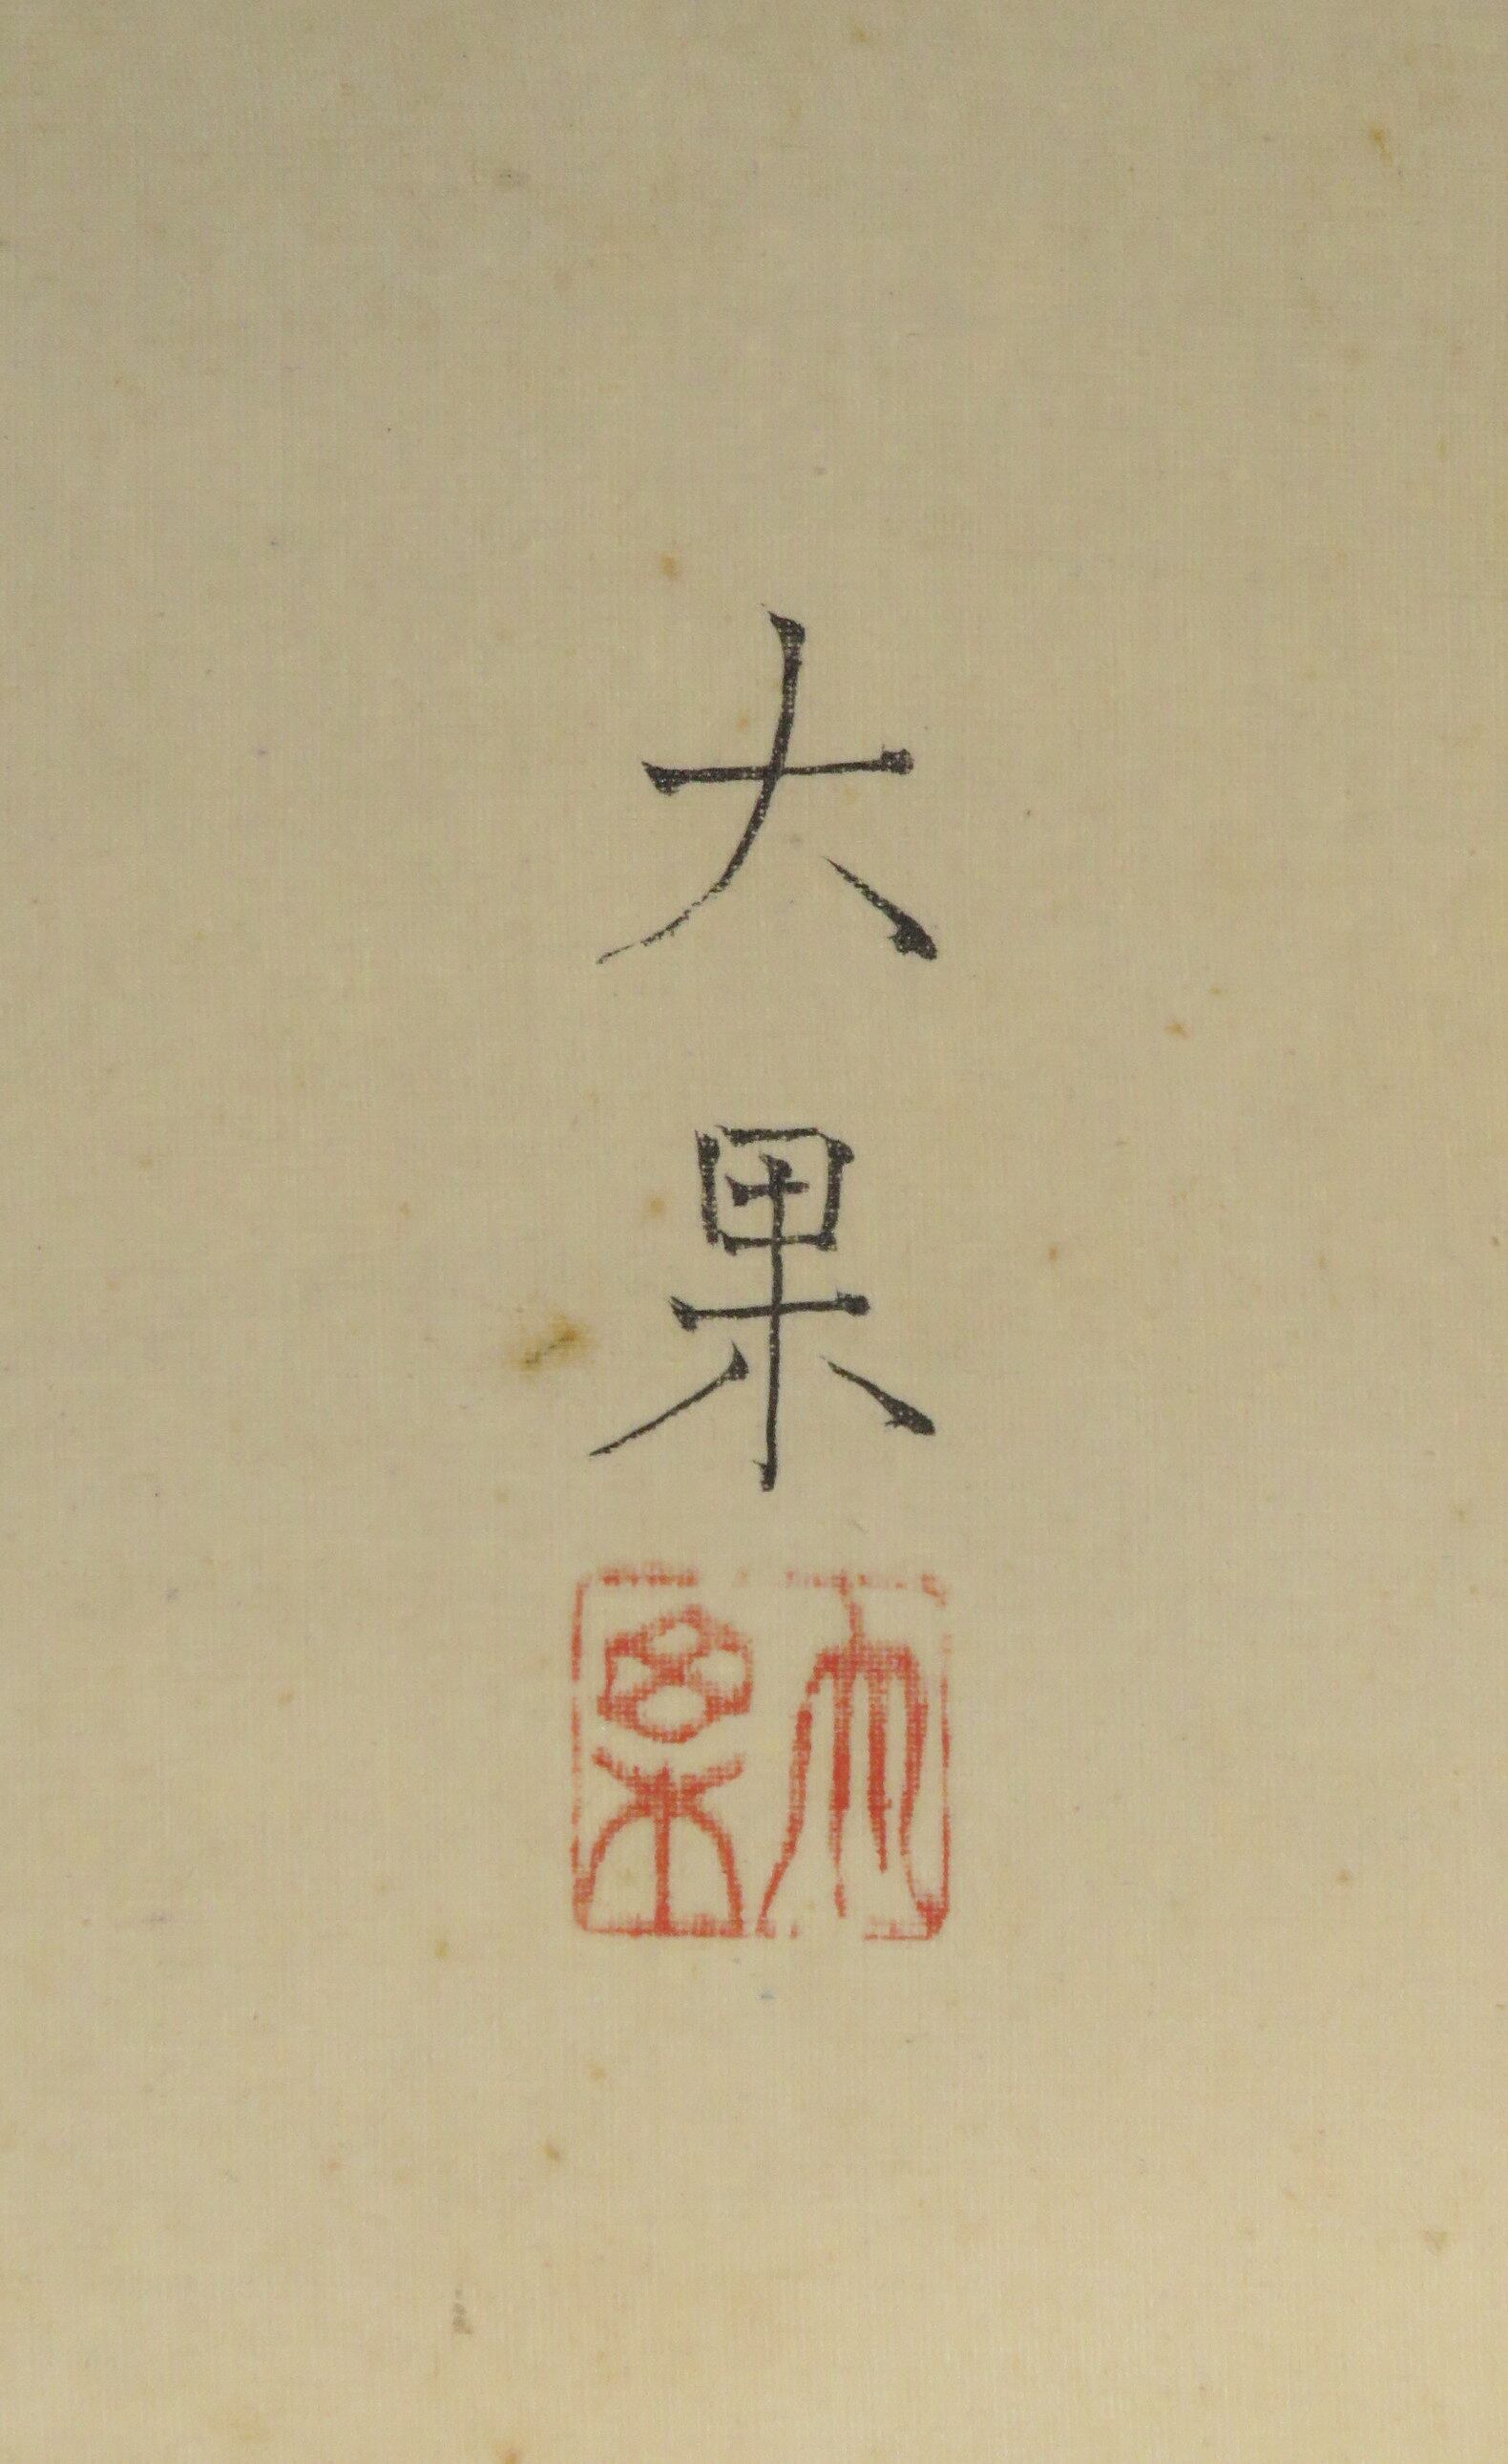 大果
大果